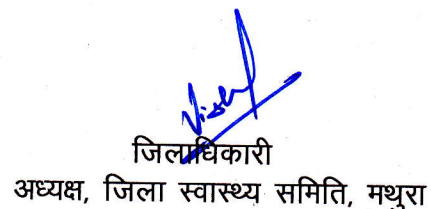 जिलाधिकारी
अध्यक्ष, जिला स्वास्थ्य समिति, मथुरा